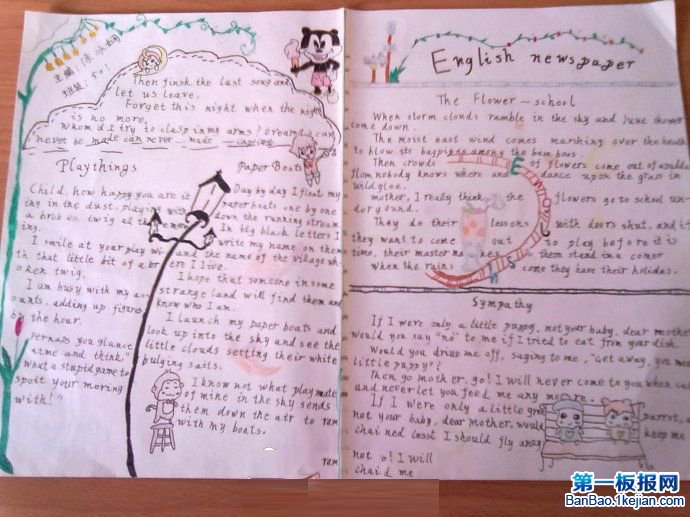 主编:徐
班级:501
Then finsk the last song and
let us leave.
Forget this night when the night
is no more,
whom d I try to clasp in my arms? Dreams can
never be made can never made captive
Playthings
Child, how happy you are
ing in the dust, playing
a broben twig all the
ing.
I smile at your play
th that little bit of a br
oken twig.
I am busy with my acc
ounts, adding up figures
by the hour.
Perhaps you glance
at me and think,"
what a stupid game to
spoit your morning
with!"
Paper Boats
Day by day I float my
paper boats one by one
down the running stream
In big black letters I
write my name on them
and the name of the village wh
ere I live.
I hope that someone in some
strange land will find them and
know who I am.
I launch my paper boats and
look up into the sky and see the
little clouds setting their white
bulging sails.
I know not what playmate
of mine in the sky sends
them down the air to ram
with my boats.
ram
English newspaper
The Flower-school
When storm clouds ramble in the sky and June shower
come down.
The moist east wind comes marhing over the heath
to blow its bagpipes among the bam boos.
Then crowds of flowers come out of a sudde
flom nobody knows where and dance upon the grass in
wild glee.
mother, I really think the flowers go to school un-
dergound.
They do their lessons with doors shut, and it
they want to come out to play before it is
time, their master makes them stand in a cornor
when the rains come they have their holidas.
Sympathy
If I were only a little puppy, not your baby, dear mother
would you say "no" to me if I tried to eat from your dish.
Would you drive me off, saying to me, "Get away, you
little puppy"?
Then go mother, go! I will never come to you when
and never let you feed me any more.
If I were only a little gree parrot, a
not your baby, dear mother. would keep me
chained lesst I should fly away
not o! I will
chaid me
第一板报网
BanBao.1kejian.com